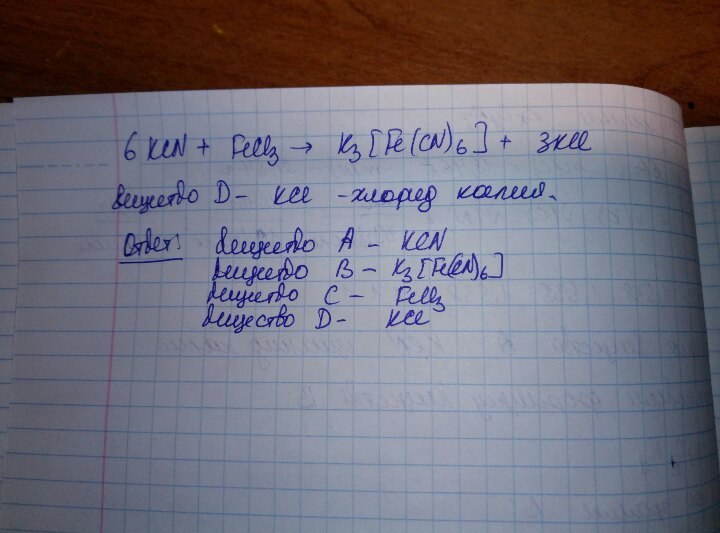 6 KCN + FeCl3 → K3[Fe(CN)6] + 3KCl
Вещество D - KCl - хлорид калия.
Ответ: вещество A - KCN
вещество B - K3[Fe(CN)6]
вещество C - FeCl3
вещество D - KCl